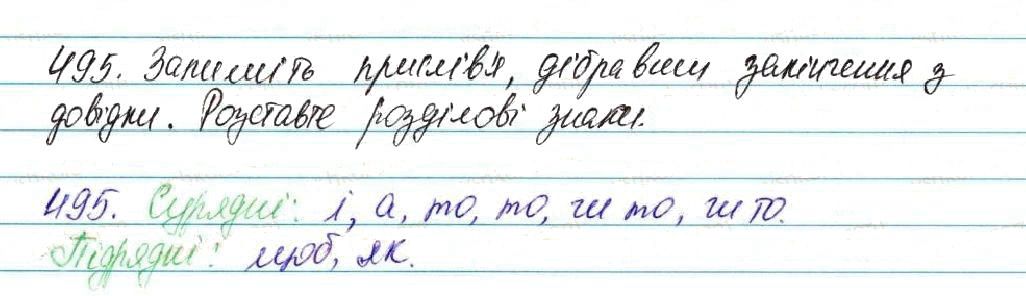 495. Запишіть прислів'я, дібравши закінчення з
довідки. Розставте розділові знаки.
495. Сурядні: і, а, то, то, чи то, чи то.
Підрядні: щоб, як.